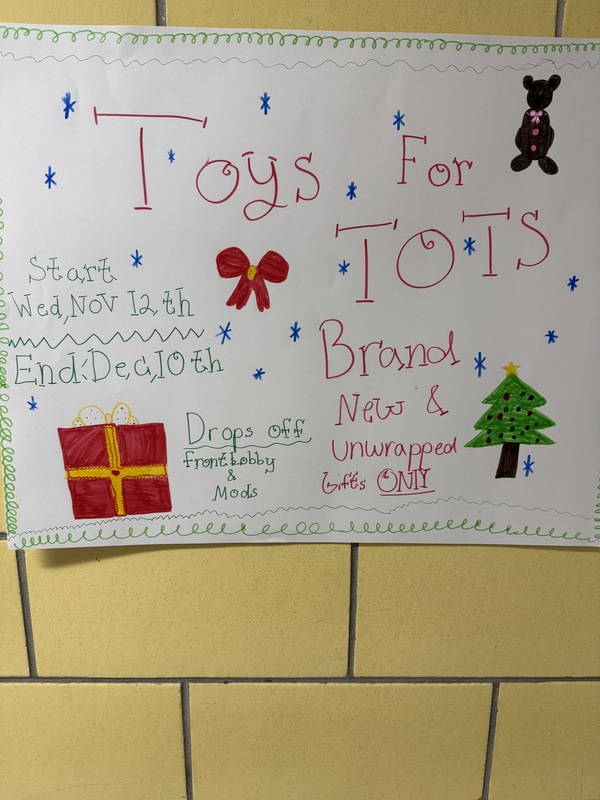 Toys For
TOTS
Start
Wed,NOV 12th
End:Dec,10th
Brand
New &
Unwrapped
Gifts ONlY
Drops off
frontLobby
&
Mods